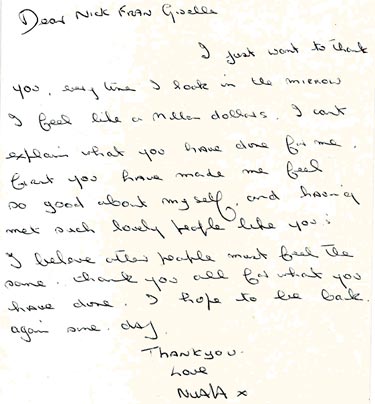 Dear Nick FRAN Giselle
I just want to thank
you, every time I look in the mirrow
I feel like a million dollars. I cant
explain what you have done for me.
but you have made me feel
so good about myself, and having
met such lovely people like you.
I believe other people must feel the
same. thank you all for what you
have done. I hope to be back
again some day.
THANKYOU.
LOVE
NUALA x